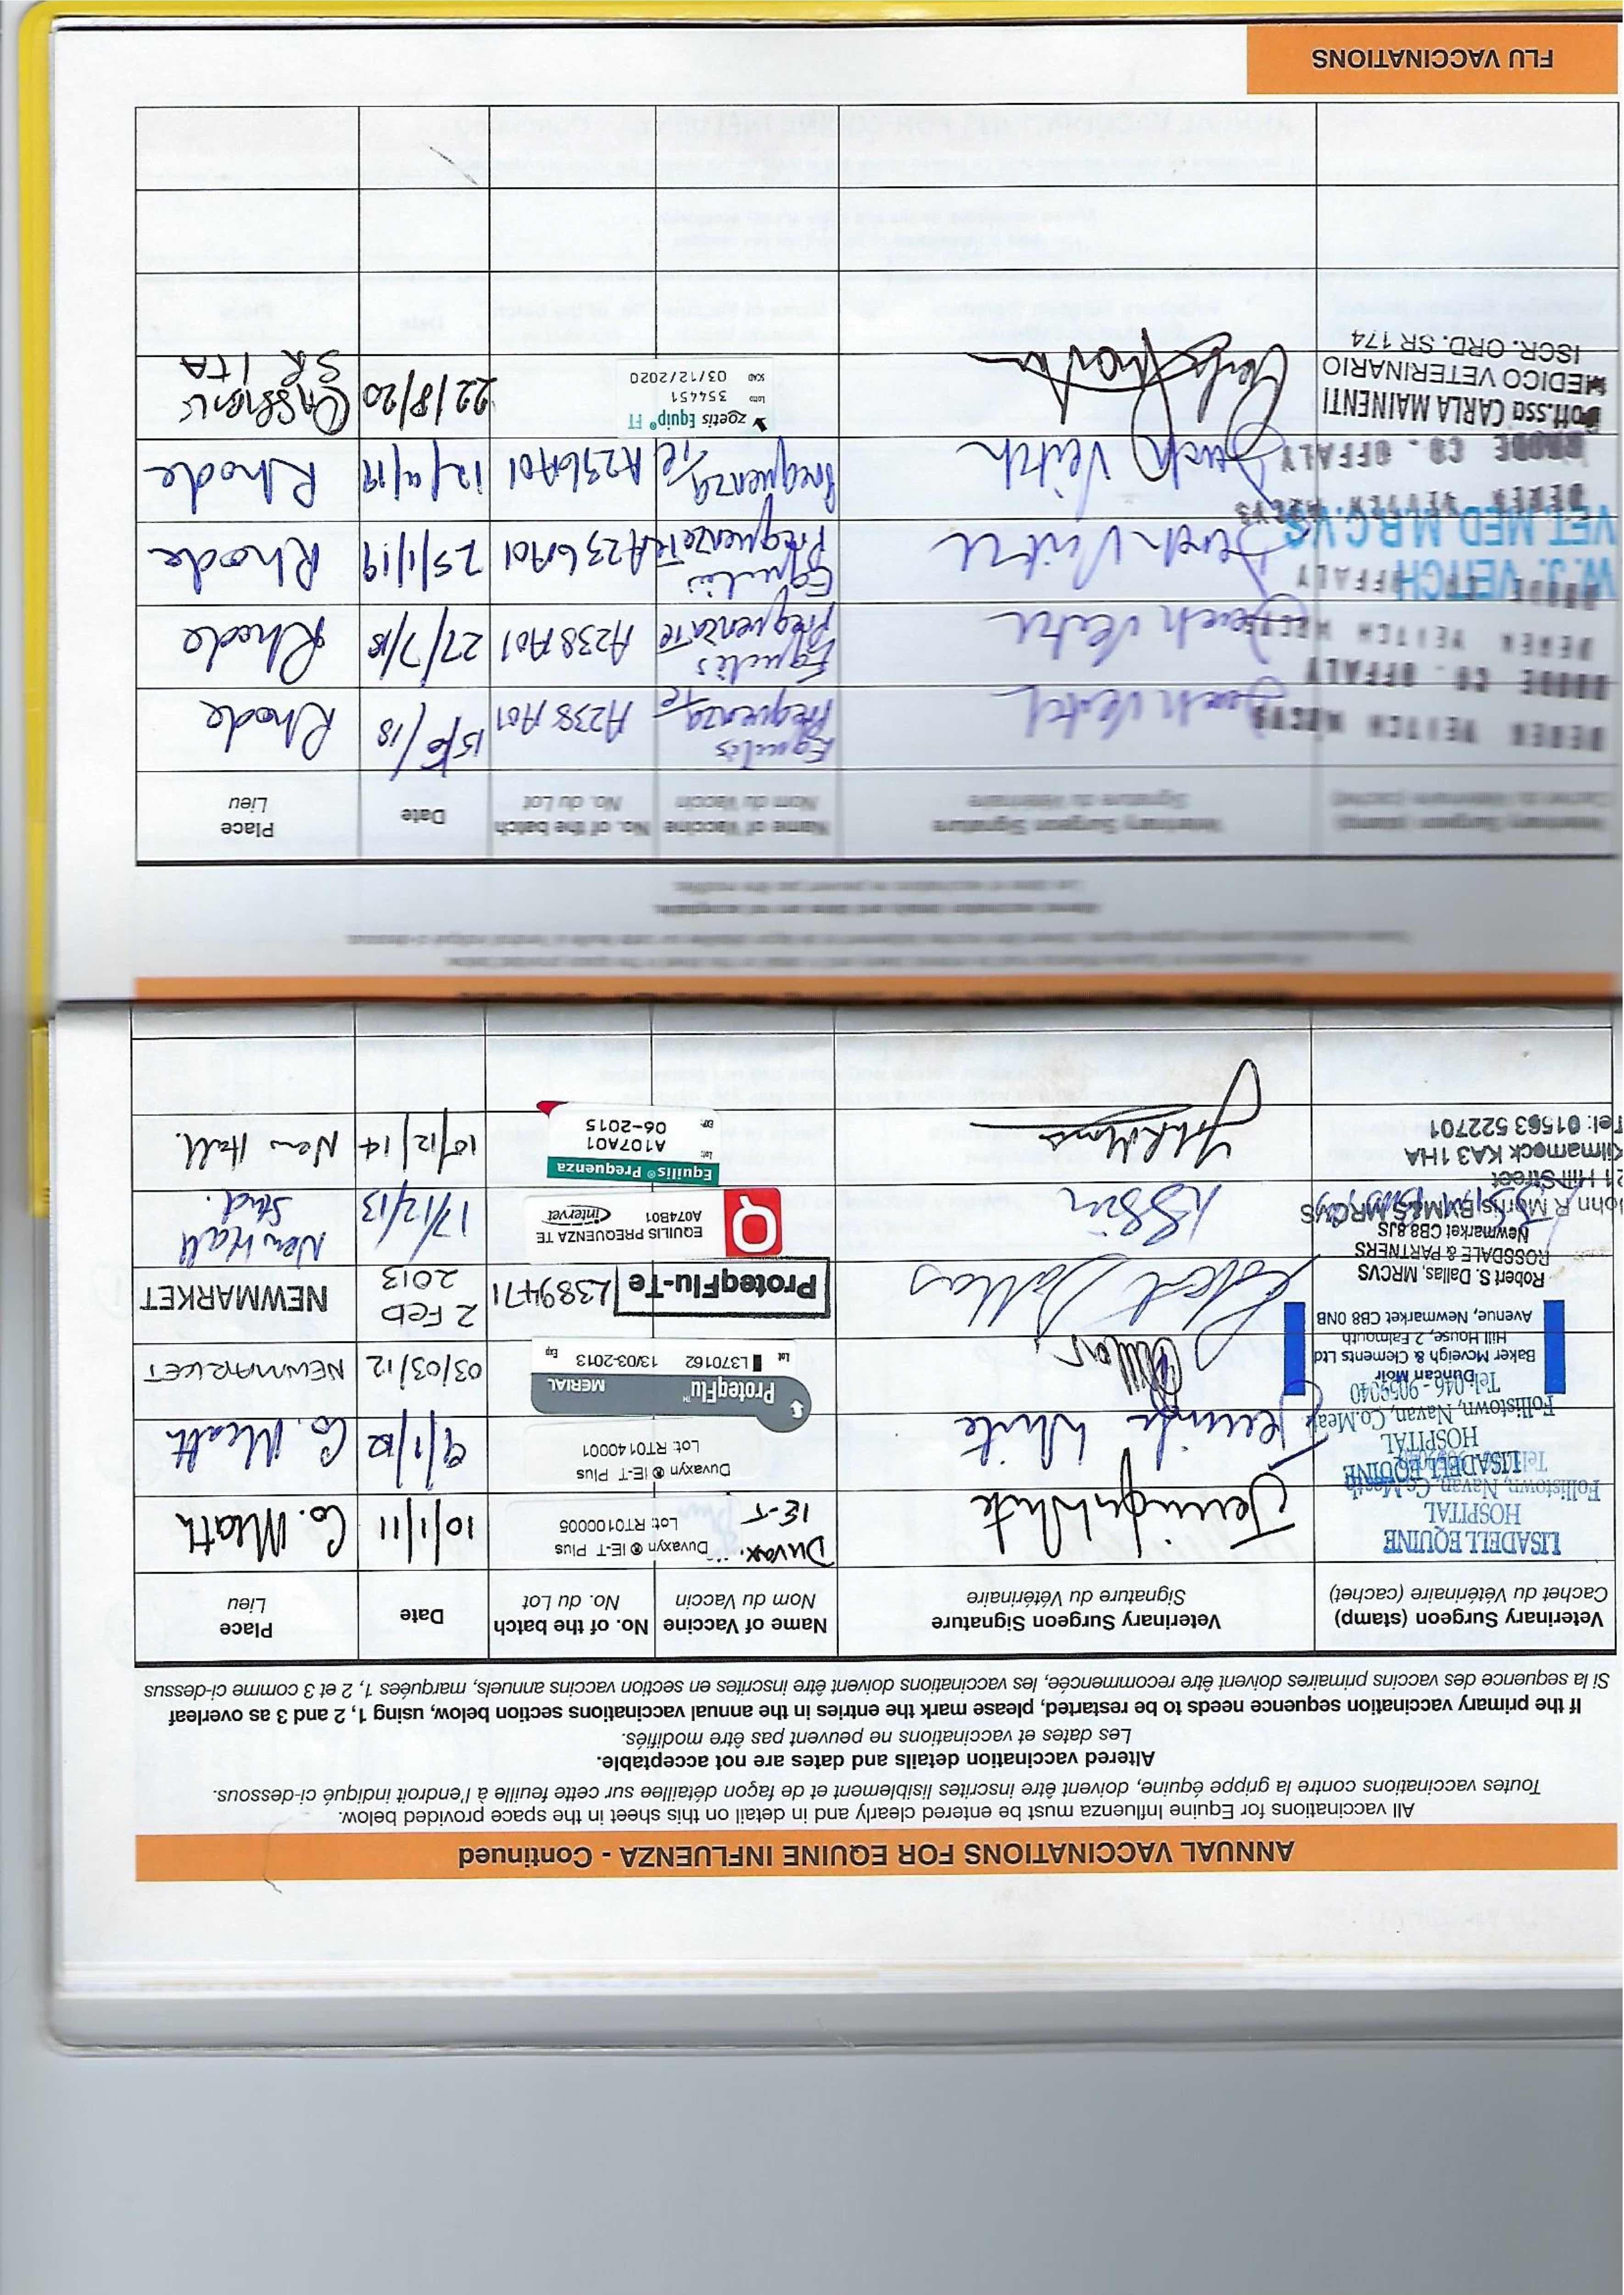 ANNUAL VACCINATIONS FOR EQUINE INFLUENZA - Continued
All vaccinations for Equine Influenza must be entered clearly and in detail on this sheet in the space provided below.
Toutes vaccinations contre la grippe équine, doivent être inscrites lisiblement et de façon détaillee sur cette feuille à l'endroit indiqué ci-dessous.
Altered vaccination details and dates are not acceptable.
Les dates et vaccinations ne peuvent pas être modifiés.
If the primary vaccination sequence needs to be restarted, please mark the entries in the annual vaccinations section below, using 1, 2 and 3 as overleaf
Si la sequence des vaccins primaires doivent être recommencée, les vaccinations doivent être inscrites en section vaccins annuels, marquées 1, 2 et 3 comme ci-dessus
Veterinary Surgeon (stamp) Veterinary Surgeon Signature Name of Vaccine No. of the batch Date Place
Cachet du Vétérinaire (cachet) Signature du Vétérinaire Nom du Vaccin No. du Lot Lieu
LISADELL EQUINE
HOSPITAL
Follistown, Navan, Co. Meath
Duvax. IE-T
Duvaxyn ® IE-T Plus
Lot: RT0100005
10/1/11 Co. Meath
LISADELL EQUINE
HOSPITAL
Follistown, Navan, Co. Meath
Tel: 046 - 9059040
White
Duvaxyn ® IE-T Plus
Lot: RT0140001
9/1/12 Co. Meath
Duncan Moir
Baker Mcveigh & Clements Ltd
Hill House, 2 Falmouth
Avenue, Newmarket CB8 0NB
ProteqFlu™ MERIAL
Lot L370162 13/03-2013 Exp
03/03/12 NEWMARKET
Robert S. Dallas, MRCVS
ROSSDALE & PARTNERS
Newmarket CB8 8JS
Robert Dallas
ProteqFlu-Te L389471
2 FEB 2013 NEWMARKET
EQUILIS PREQUENZA TE
A074B01 Intervet
17/12/13 New Hall Stud.
John R Morris BVM&S MRCVS
21 Hill Street
Kilmarnock KA3 1HA
Tel: 01563 522701
Equilis® Prequenza
Lot: A107A01
EXP: 06-2015
10/12/14 New Hall.
Veterinary Surgeon (stamp) Veterinary Surgeon Signature Name of Vaccine No. of the batch Date Place
Cachet du Vétérinaire (cachet) Signature du Vétérinaire Nom du Vaccin No. du Lot Lieu
DEREK VEITCH MRCVS
RHODE CO. OFFALY
Derek Veitch Equilis Prequenza Te A238A01 15/6/18 Rhode
DEREK VEITCH MRCVS
RHODE CO. OFFALY
Derek Veitch Equilis Prequenza TE A238A01 27/7/18 Rhode
W.J. VEITCH
VET MED M.R.C.V.S
Derek Veitch Equilis Prequenza TE A236A01 25/1/19 Rhode
DEREK VEITCH MRCVS
RHODE CO. OFFALY
Derek Veitch Prequenza Te A236A01 Rhode
Dott.ssa CARLA MAINENTI
MEDICO VETERINARIO
ISCR. ORD. SR 174
zoetis Equip® FT
Lotto 354451
SCAD 03/12/2020
22/8/20 SR ITA
FLU VACCINATIONS